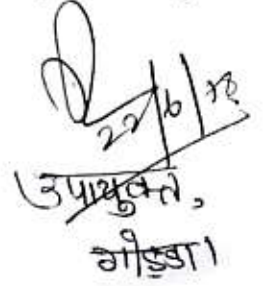 22/6/18
उपायुक्त,
गोड्डा।